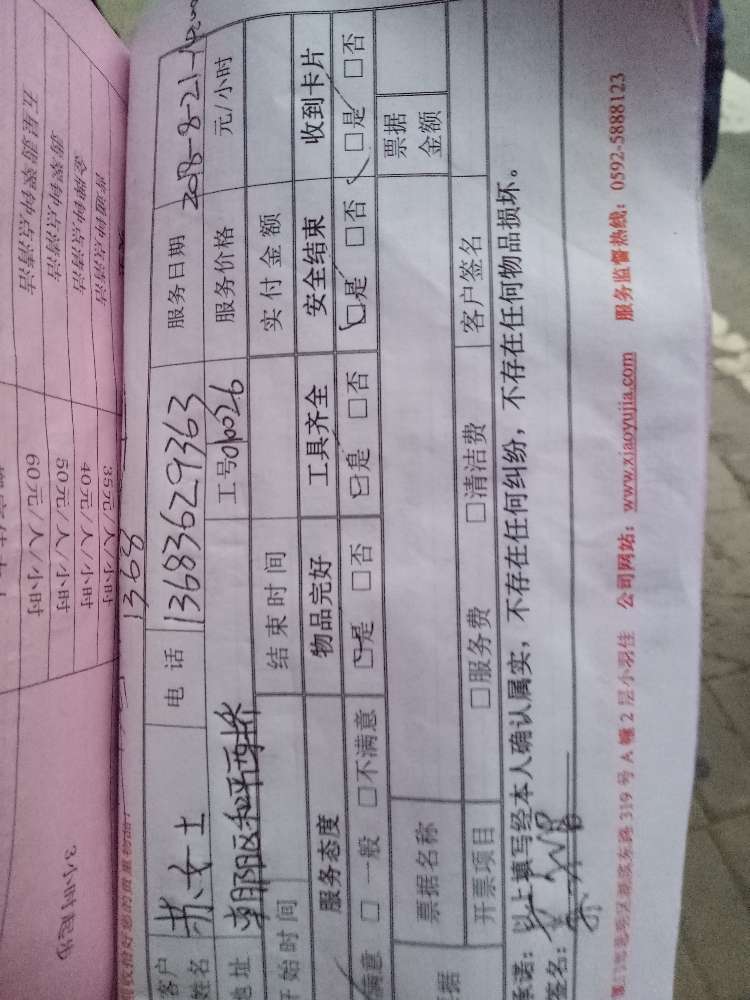 客户姓名 苏女士 电话 13683629363 服务日期 2018-8-21
1368
地址 朝阳区和平西桥 工号 010026 服务价格 元/小时
开始时间 结束时间 实付金额
服务态度 物品完好 工具齐全 安全结束 收到卡片
满意 □一般 □不满意 □是 □否 □是 □否 □是 □否 □是 □否
票据名称 票据金额
开票项目 □服务费 □清洁费 客户签名
承诺：以上填写经本人确认属实，不存在任何纠纷，不存在任何物品损坏。
签名：
319号A幢2层小羽佳 公司网站：www.xiaoyujia.com 服务监督热线：0592-5888123
35元/人/小时
40元/人/小时
50元/人/小时
60元/人/小时
普通钟点清洁
金牌钟点清洁
钟点清洁
五星 钟点清洁
3小时起步